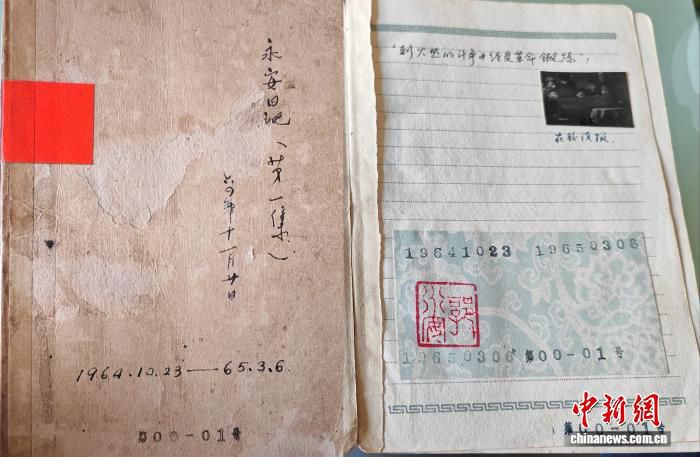 永安日记（第一集）
六四年十一月廿日
1964.10.23——65.3.6.
第00-01号
“到火热的斗争中经受革命锻炼”，
19641023 19650306
郭永安
19650306 第00-01号
第00-01号
中新网
chinanews.com.cn